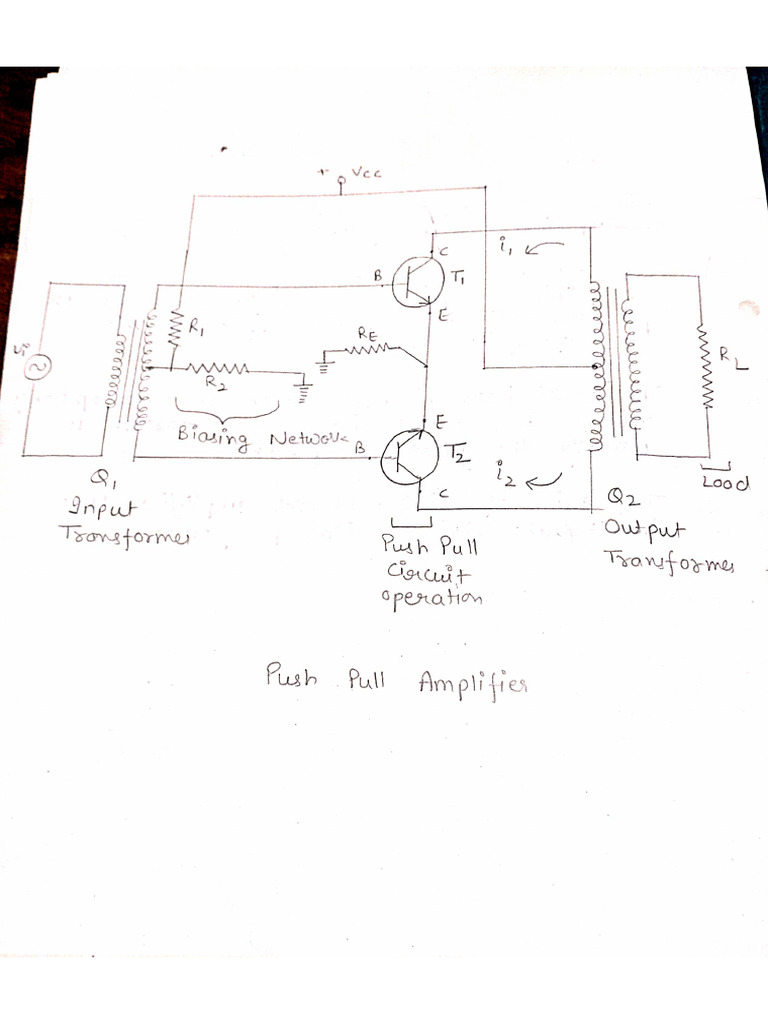 + Vcc
i1
C
B
T1
E
R1
RE
Vin
R2
RL
Biasing Network
E
B
T2
i2
C
Load
Q1
Input
Transformer
Q2
Output
Transformer
Push Pull
Circuit
operation
Push Pull Amplifier